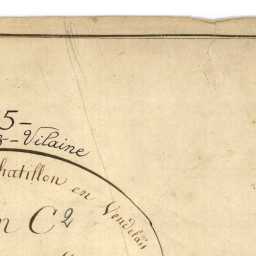 5-
&-Vilaine
hatillon en Vendelais
n C2